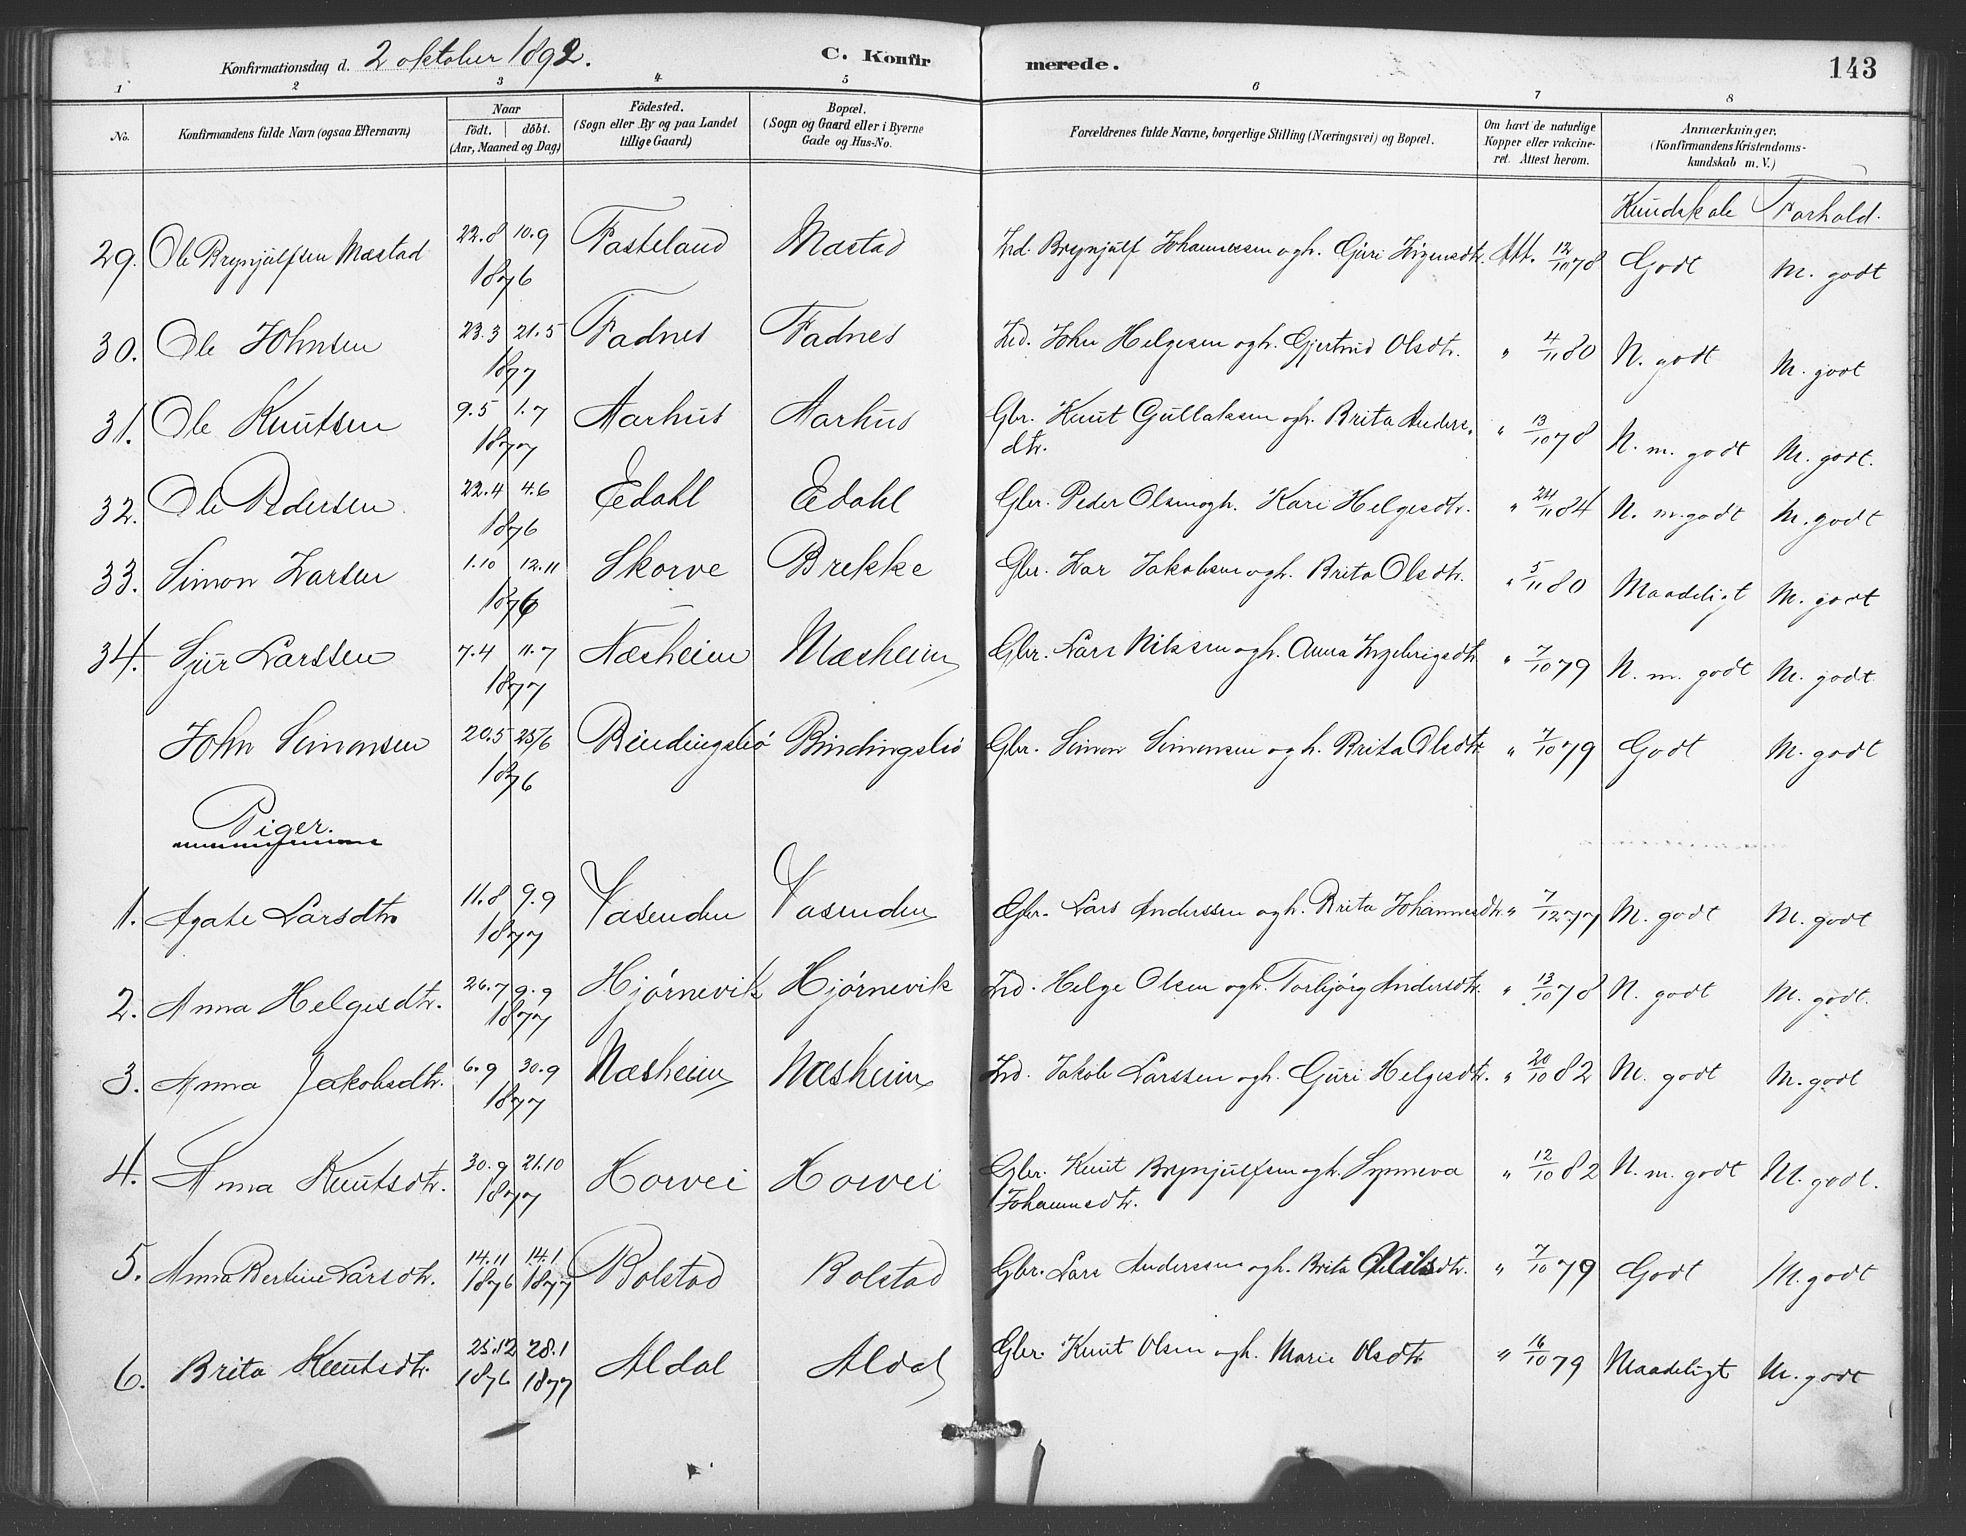 Konfirmationsdag d. 2 oktober 1892. C. Konfirmerede. 143
1 2 3 4 5 6 7 8
No. Konfirmandens fulde Navn (ogsaa Efternavn) Naar födt. döbt. (Aar, Maaned og Dag) Födested. (Sogn eller By og paa Landet tillige Gaard) Bopæl. (Sogn og Gaard eller i Byerne Gade og Hus-No. Forældrenes fulde Navne, borgerlige Stilling (Næringsvei) og Bopæl. Om havt de naturlige Kopper eller vakcineret. Attest herom. Anmærkninger. (Konfirmandens Kristendomskundskab m. V.)
Kundskab Forhold.
29. Ole Brynjulfsen Mæstad 22.8 10.9 1876 Fasteland Mæstad Ird. Brynjulf Johannessen og h. Guri Iversdtr. Att. 12/10 78 Godt M. godt
30. Ole Johnsen 23.3 21.5 1877 Fadnes Fadnes Ird. John Helgesen og h. Gjertrud Olsdtr. " 4/11 80 N. godt M. godt
31. Ole Knutsen 9.5 1.7 1877 Aarhus Aarhus Gbr. Knut Gullaksen og h. Brita Anders-
dtr. " 13/10 78 N. m. godt M. godt.
32. Ole Pedersen 22.4 4.6 1876 Edahl Edahl Gbr. Peder Olsen og h. Kari Helgesdtr. " 24/11 84 N. m. godt M. godt
33. Simon Larsen 1.10 12.11 1876 Skorve Brekke Gbr. Lar Jakobsen og h. Brita Olsdtr. " 5/11 80 Maadeligt M. godt
34. Sjur Larssen 7.4 11.7 1877 Næsheim Mæsheim Gbr. Lars Nilssen og h. Anna Ingebrigsdtr " 7/10 79 N. m. godt M. godt
John Simonsen 20.5 25/6 1876 Bindingsbø Bindingsbø Gbr. Simon Simonsen og h. Brita Olsdtr " 7/10 79 Godt M. godt
Piger.
1. Agate Larsdtr 11.8 9.9 1877 Vasenden Vasenden Gbr. Lars Anderssen og h. Brita Johannesdtr. " 7/12 77 M. godt M. godt
2. Anna Helgesdtr. 26.7 9.9 1877 Hjørnevik Hjørnevik Ird. Helge Olsen og h. Torbjörg Andersdtr. " 13/10 78 N. godt M. godt.
3. Anna Jakobsdtr. 6.9 30.9 1877 Næsheim Næsheim Ird. Jakob Larssen og h. Guri Helgesdtr. " 20/10 82 M. godt M. godt
4. Anna Knutsdtr. 30.9 21.10 1877 Horvei Horvei Gbr. Knut Brynjulfsen og h. Synneva
Johannesdtr. " 12/10 82 N. m. godt M. godt.
5. Anna Bertine Larsdtr. 14.11 1876 14.1 1877 Bolstad Bolstad Gbr. Lars Anderssen og h. Brita Nilsdtr. " 7/10 79 Godt M. godt
6. Brita Knutsdtr. 25.12 1876 28.1 1877 Aldal Aldal Gbr. Knut Olsen og h. Marie Olsdtr " 16/10 79 Maadeligt M. godt